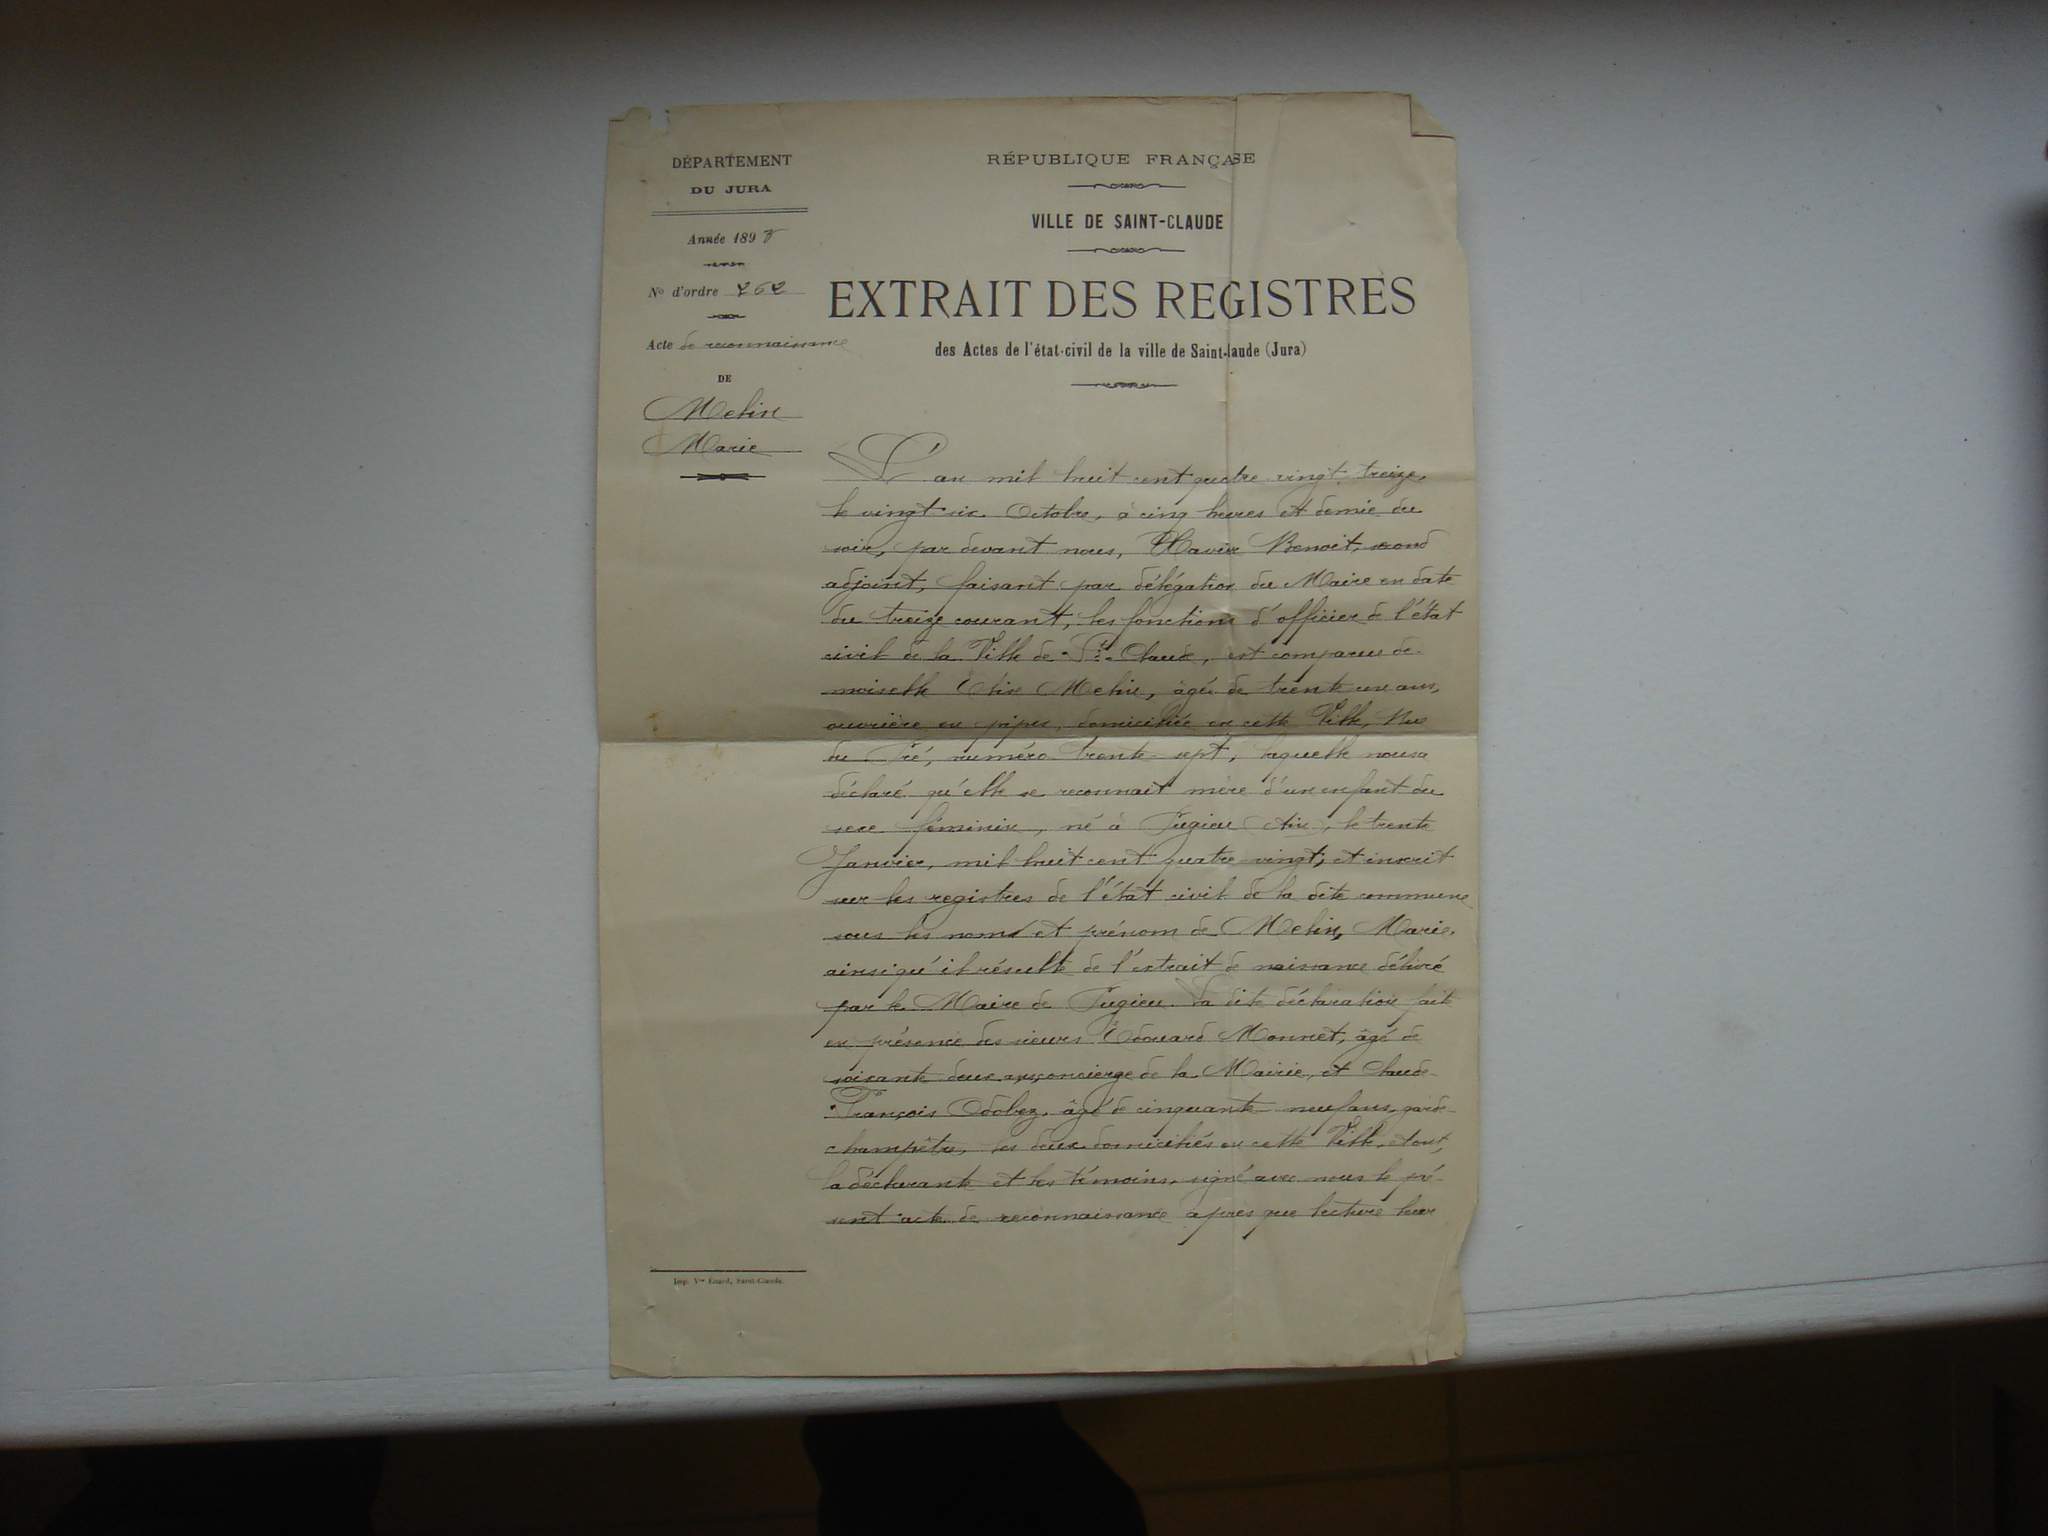 DÉPARTEMENT
DU JURA
Année 1893
No d'ordre 262
Acte de reconnaissance
DE
Melin
Marie
RÉPUBLIQUE FRANÇAISE
VILLE DE SAINT-CLAUDE
EXTRAIT DES REGISTRES
des Actes de l'état-civil de la ville de Saint-laude (Jura)
L'an mil huit cent quatre vingt treize,
le vingt six Octobre, à cinq heures et demie du
soir, par devant nous, Xavier Benoit, second
adjoint, faisant par délégation du Maire en date
du treize courant, les fonctions d'officier de l'état
civil de la Ville de St-Claude, est comparue de-
moiselle Melin, âgée de trente un ans,
ouvrière en pipes, domiciliée en cette Ville, Rue
du Pré, numéro trente-sept, laquelle nous a
déclaré qu'elle se reconnait mère d'un enfant du
sexe féminin, né à Jugieu (Ain), le trente
Janvier, mil huit cent quatre-vingt, et inscrit
sur les registres de l'état civil de la dite commune
sous les noms et prénom de Melin, Marie,
ainsi qu'il résulte de l'extrait de naissance délivré
par le Maire de Jugieu. La dite déclaration faite
en présence des sieurs Edouard Monnet, âgé de
soixante deux ans, concierge de la Mairie, et Claude-
François Odobez, âgé de cinquante-neuf ans, garde-
champêtre, les deux domiciliés en cette Ville, et ont,
la déclarante et les témoins, signé avec nous le pré-
sent acte de reconnaissance après que lecture leur
Imp. Vve Enard, Saint-Claude.